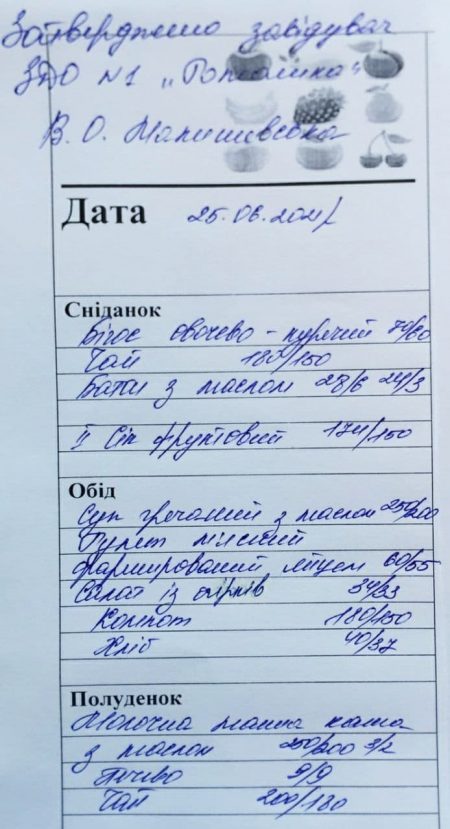 Затверджено завідувач
ЗДО №1 „Ромашка"
В. О. Малишевська
Дата 25.06.2021
Сніданок
Бігос овочево-курячий 70/60
Чай 180/150
Батон з маслом 28/6 24/3
ІІ Сік фруктовий 174/150
Обід
Суп гречаний з маслом 250/200
Рулет мʼясний
фарширований яйцем 60/55
Салат із огірків 34/33
Компот 180/150
Хліб 40/37
Полуденок
Молочна манна каша
з маслом 250/200 3/2
Печиво 9/9
Чай 200/180